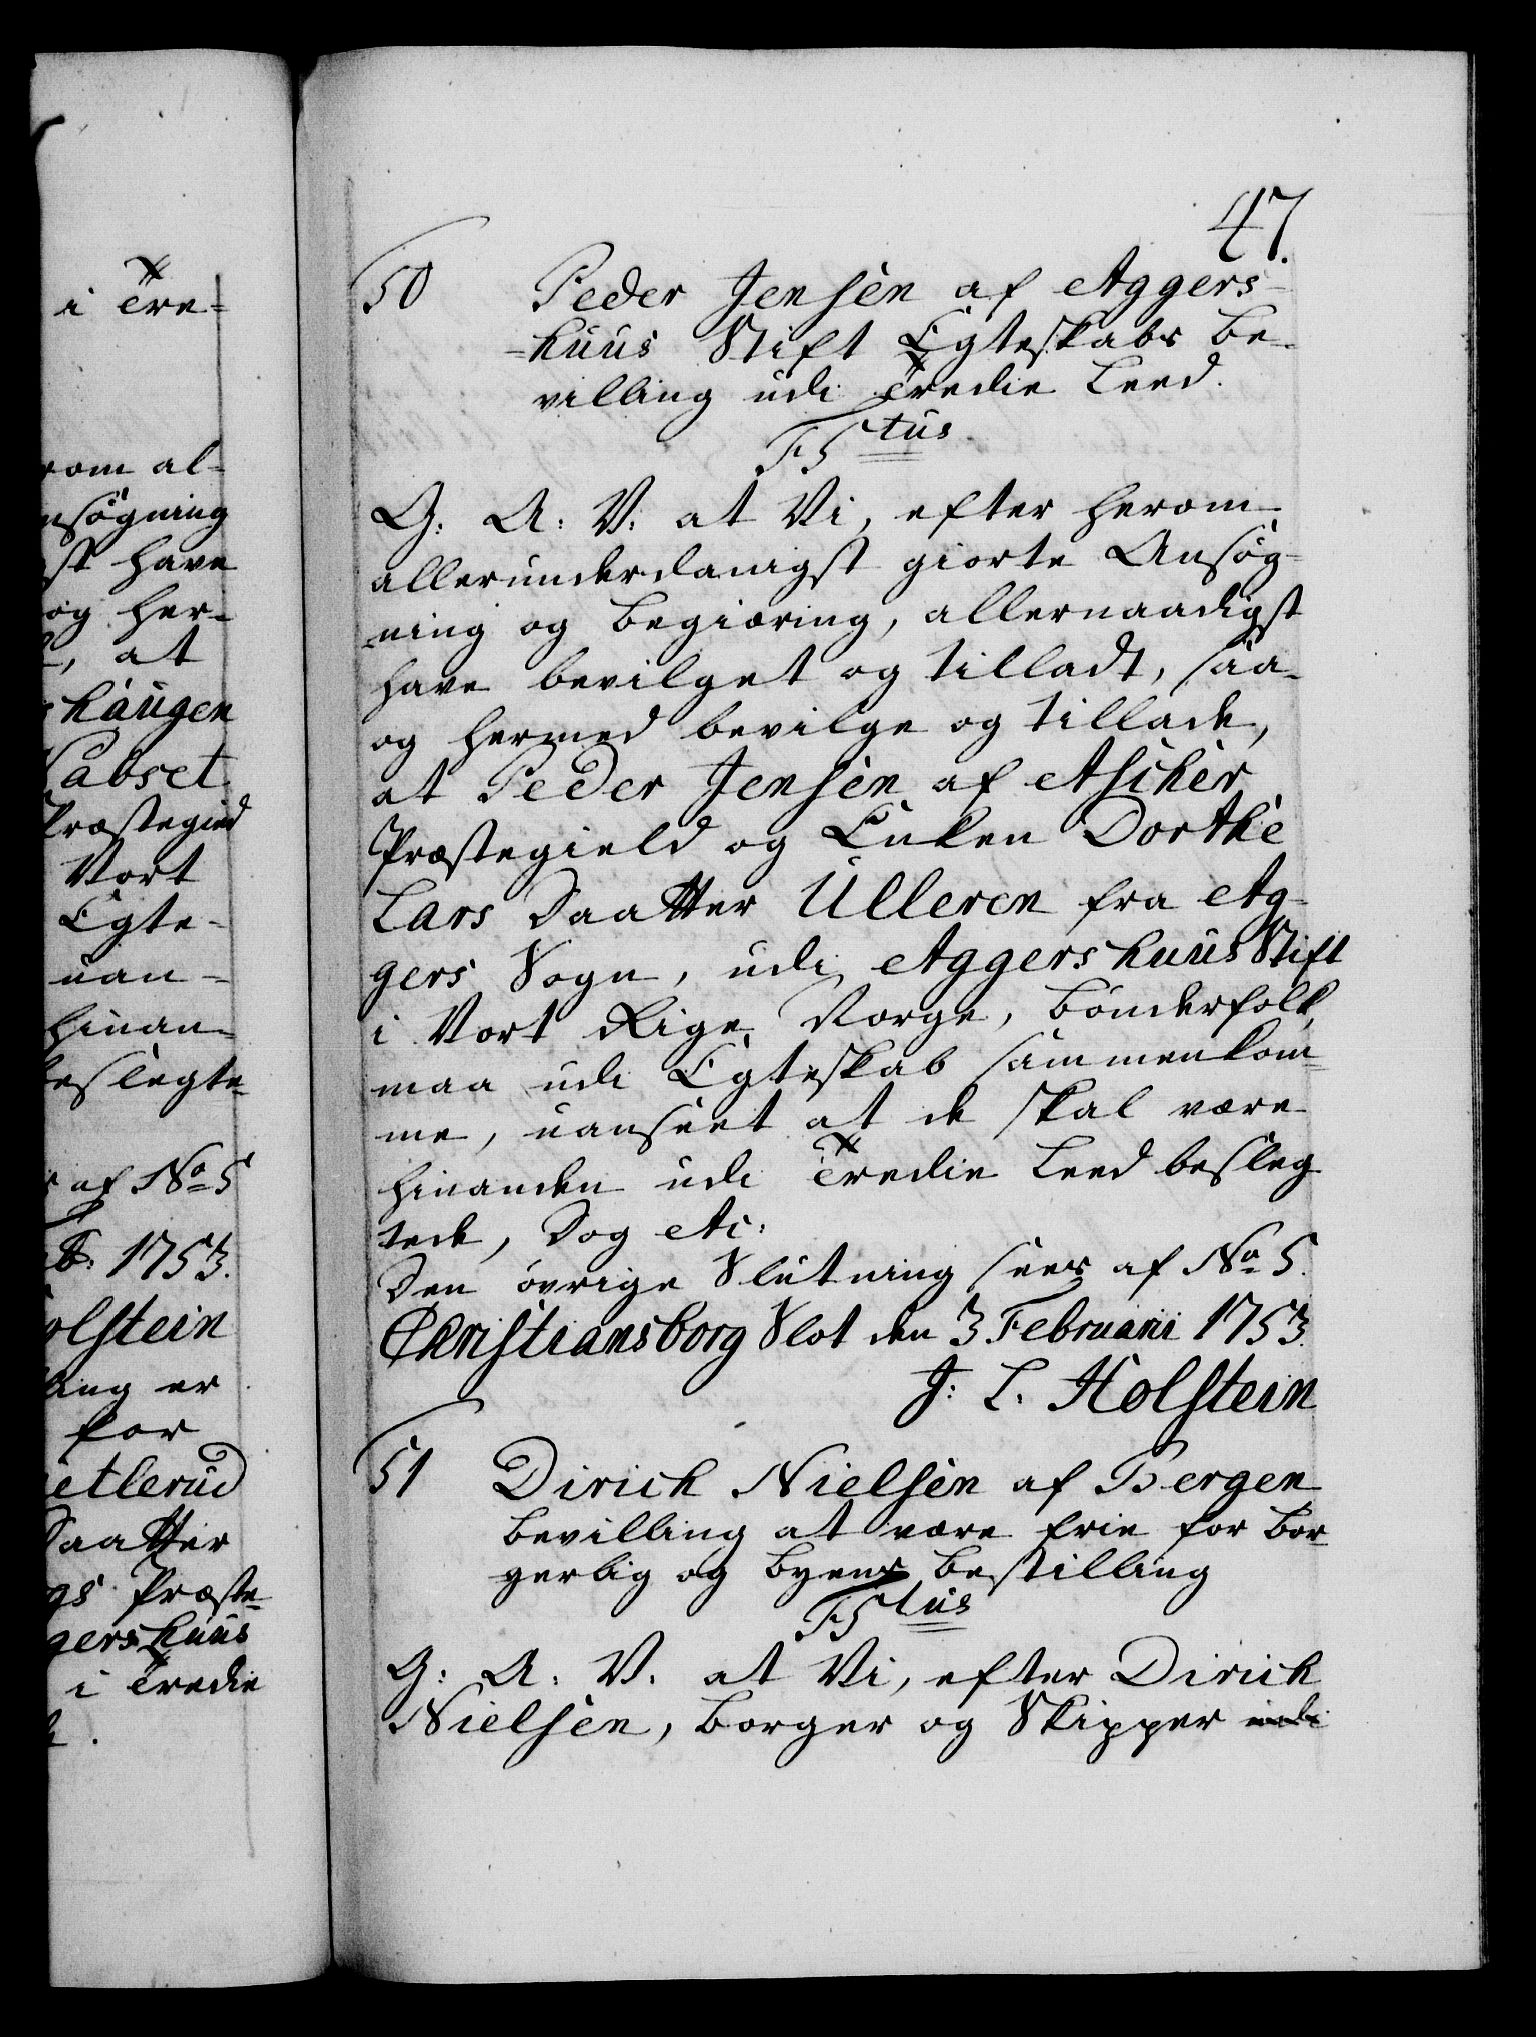 i Tre-
rom al-
nsøgning
st have
og her-
, at
shaugen
Sabset
Præstegield
Vort
Egte-
uan-
hinan-
beslegte-
af No 5
b: 1753.
olstein
ling er
for
ietlerud
Daatter
gs Præste-
gershuus
i Tredie
47.
50 Peder Jensen af Aggers-
-huus Stift Egteskabs Be-
villing udi Tredie Leed.
F5tus
G: A: V: at Vi, efter herom
allerunderdanigst giorte Ansøg-
ning og Begiæring, allernaadigst
have bevilget og tilladt, saa-
og hermed bevilge og tillade,
at Peder Jensen af Ascher
Præstegield og Enken Dorthe
Lars Daatter Ulleren fra Ag-
gers Sogn, udi Aggershuus Stift
i Vort Rige Norge, Bønderfolk,
maa udi Egteskab sammenkom-
me, uanseet at de skal være
hinanden udi Tredie Leed besleg-
tede, Dog etc:
Den øvrige Slutning sees af No 5.
Christiansborg Slot den 3 Februarii 1753.
J: L. Holstein
51 Dirich Nielsen af Bergen
Bevilling at være frie for Bor-
gerlig og Byens Bestilling
F5tus
G: A: V. at Vi, efter Dirich
Nielsen, Borger og Skipper udi